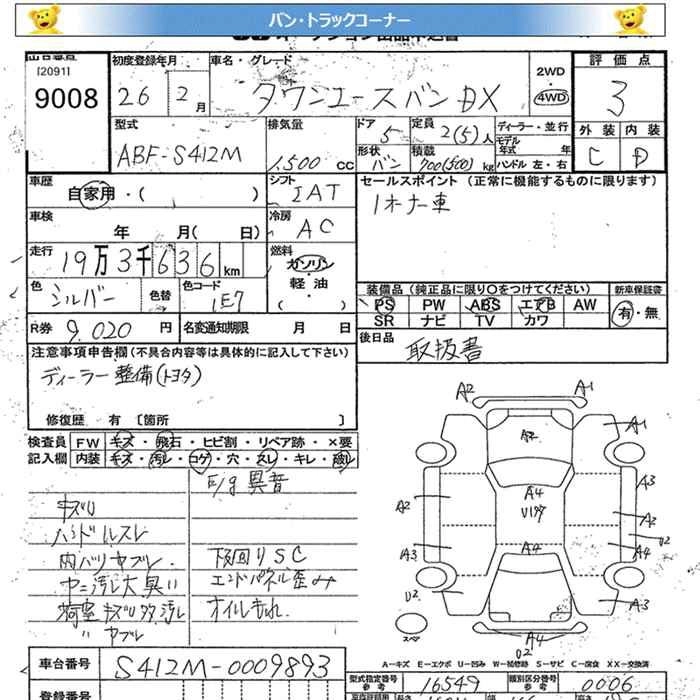 バン・トラックコーナー
[2091]
9008
初度登録年月
26年 2月
車名・グレード
タウンエースバン DX
2WD
・
4WD
評価点
3
外装 内装
C D
型式
ABF-S412M
排気量
1,500 CC
ドア
5
形状
バン
定員
2(5)人
積載
700(500)kg
ディーラー・並行
モデル
年式 年
ハンドル 左・右
車歴
自家用・( )
シフト
IAT
セールスポイント (正常に機能するものに限ります)
1オーナー車
車検
年 月( 日)
冷房
AC
走行
19万3千636km
燃料
ガソリン
・
軽油
色
シルバー
色替
色コード
1E7
装備品 (純正品に限り○をつけてください)
PS PW ABS エアB AW
SR ナビ TV カワ
新車保証書
有・無
R券
9,020円
名変通知期限 月 日
後日品
取扱書
注意事項申告欄(不具合内容等は具体的に記入して下さい)
ディーラー整備(トヨタ)
修復歴 有 〔箇所 〕
検査員
記入欄
FW キズ・飛石・ヒビ割・リペア跡・×要
内装 キズ・汚レ・コゲ・穴・スレ・キレ・破レ
E/g異音
キズリ
ハンドルスレ
内バリヤブレ
ヤニ汚レ大臭い
荷室キズ多汚レ
〃ヤブレ
下回りSC
エンドパネル歪み
オイルもれ
A2 A1
A2
A1
A3
A2
A4
U1アナ
A2
U2
A3
A4
A4
U2
A3
A4
U2
スペア
A…キズ E…エクボ U…凹み W…補修跡 S…サビ C…腐食 XX…交換済
車台番号
S412M-0009893
登録番号
型式指定番号
参考
16549
類別区分番号
参考
0006